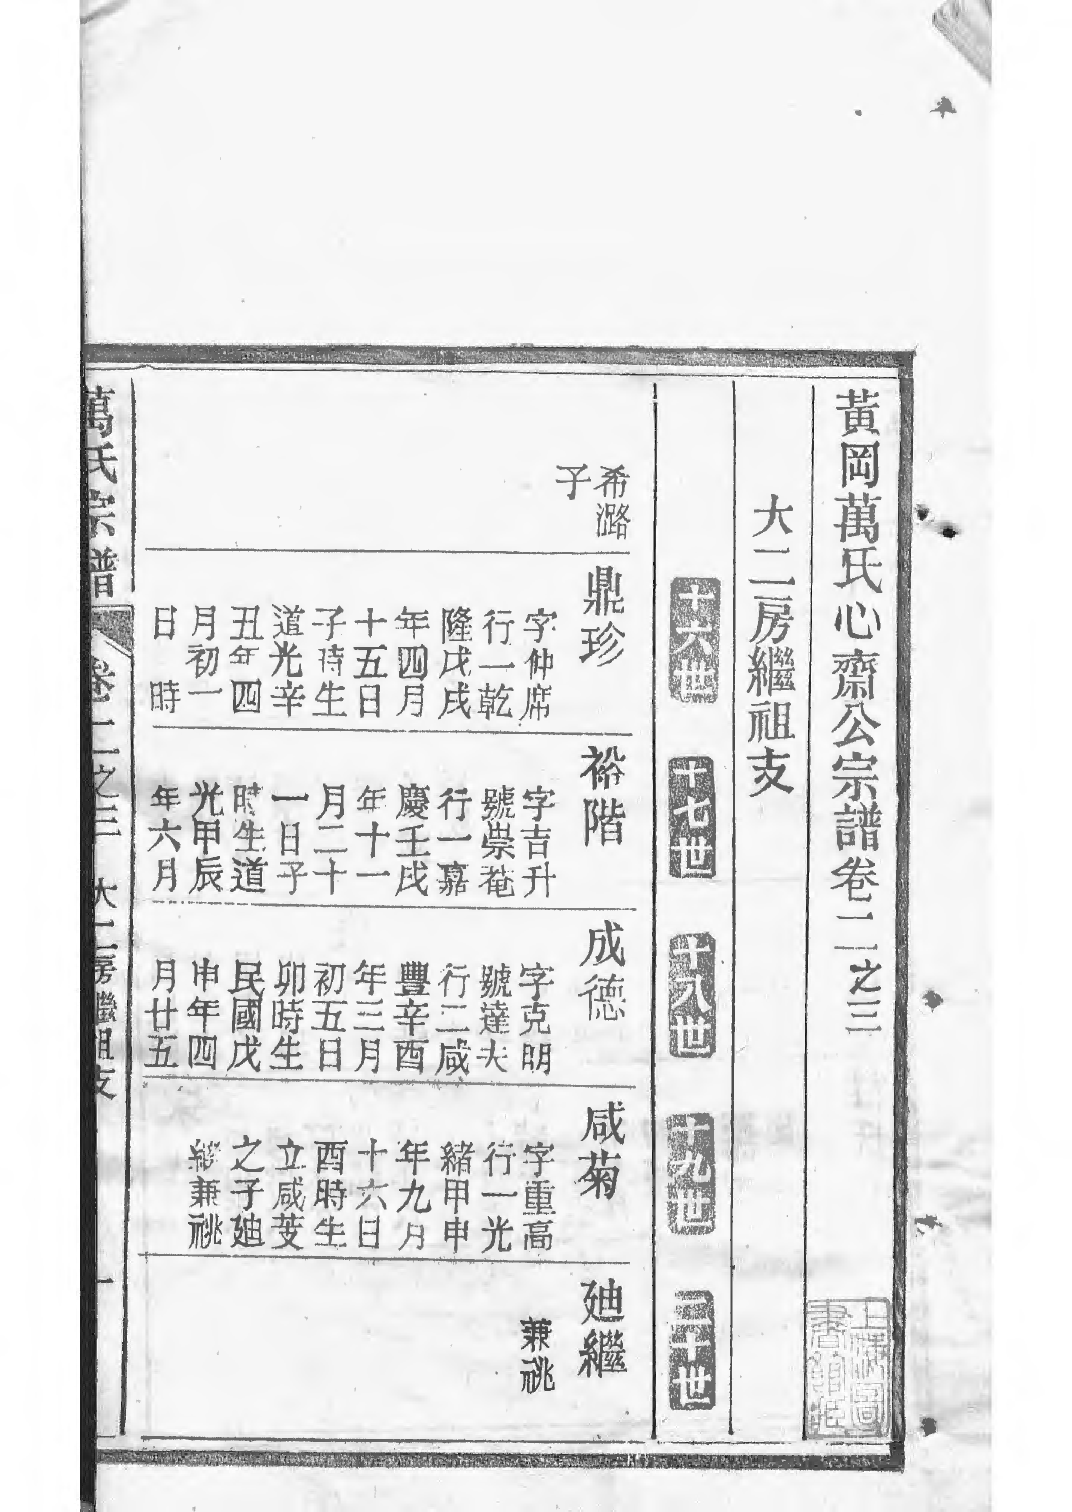 黃岡萬氏心齋公宗譜卷二之三
大二房繼祖支
十六世
十七世
十八世
十九世
二十世
希潞
子
鼎珍
字仲席
行一乾
隆戊戌
年四月
十五日
子時生
道光辛
丑年四
月初一
日 時
裕階
字吉升
號崇菴
行一嘉
慶壬戌
年十一
月二十
一日子
時生道
光甲辰
年六月
成德
字克明
號達夫
行二咸
豐辛酉
年三月
初五日
卯時生
民國戊
申年四
月廿五
咸菊
字重高
行一光
緒甲申
年九月
十六日
酉時生
立咸芰
之子廸
繼兼祧
廸繼
兼祧
萬氏宗譜
卷二之三
大二房繼祖支
一
上海圖
書館藏